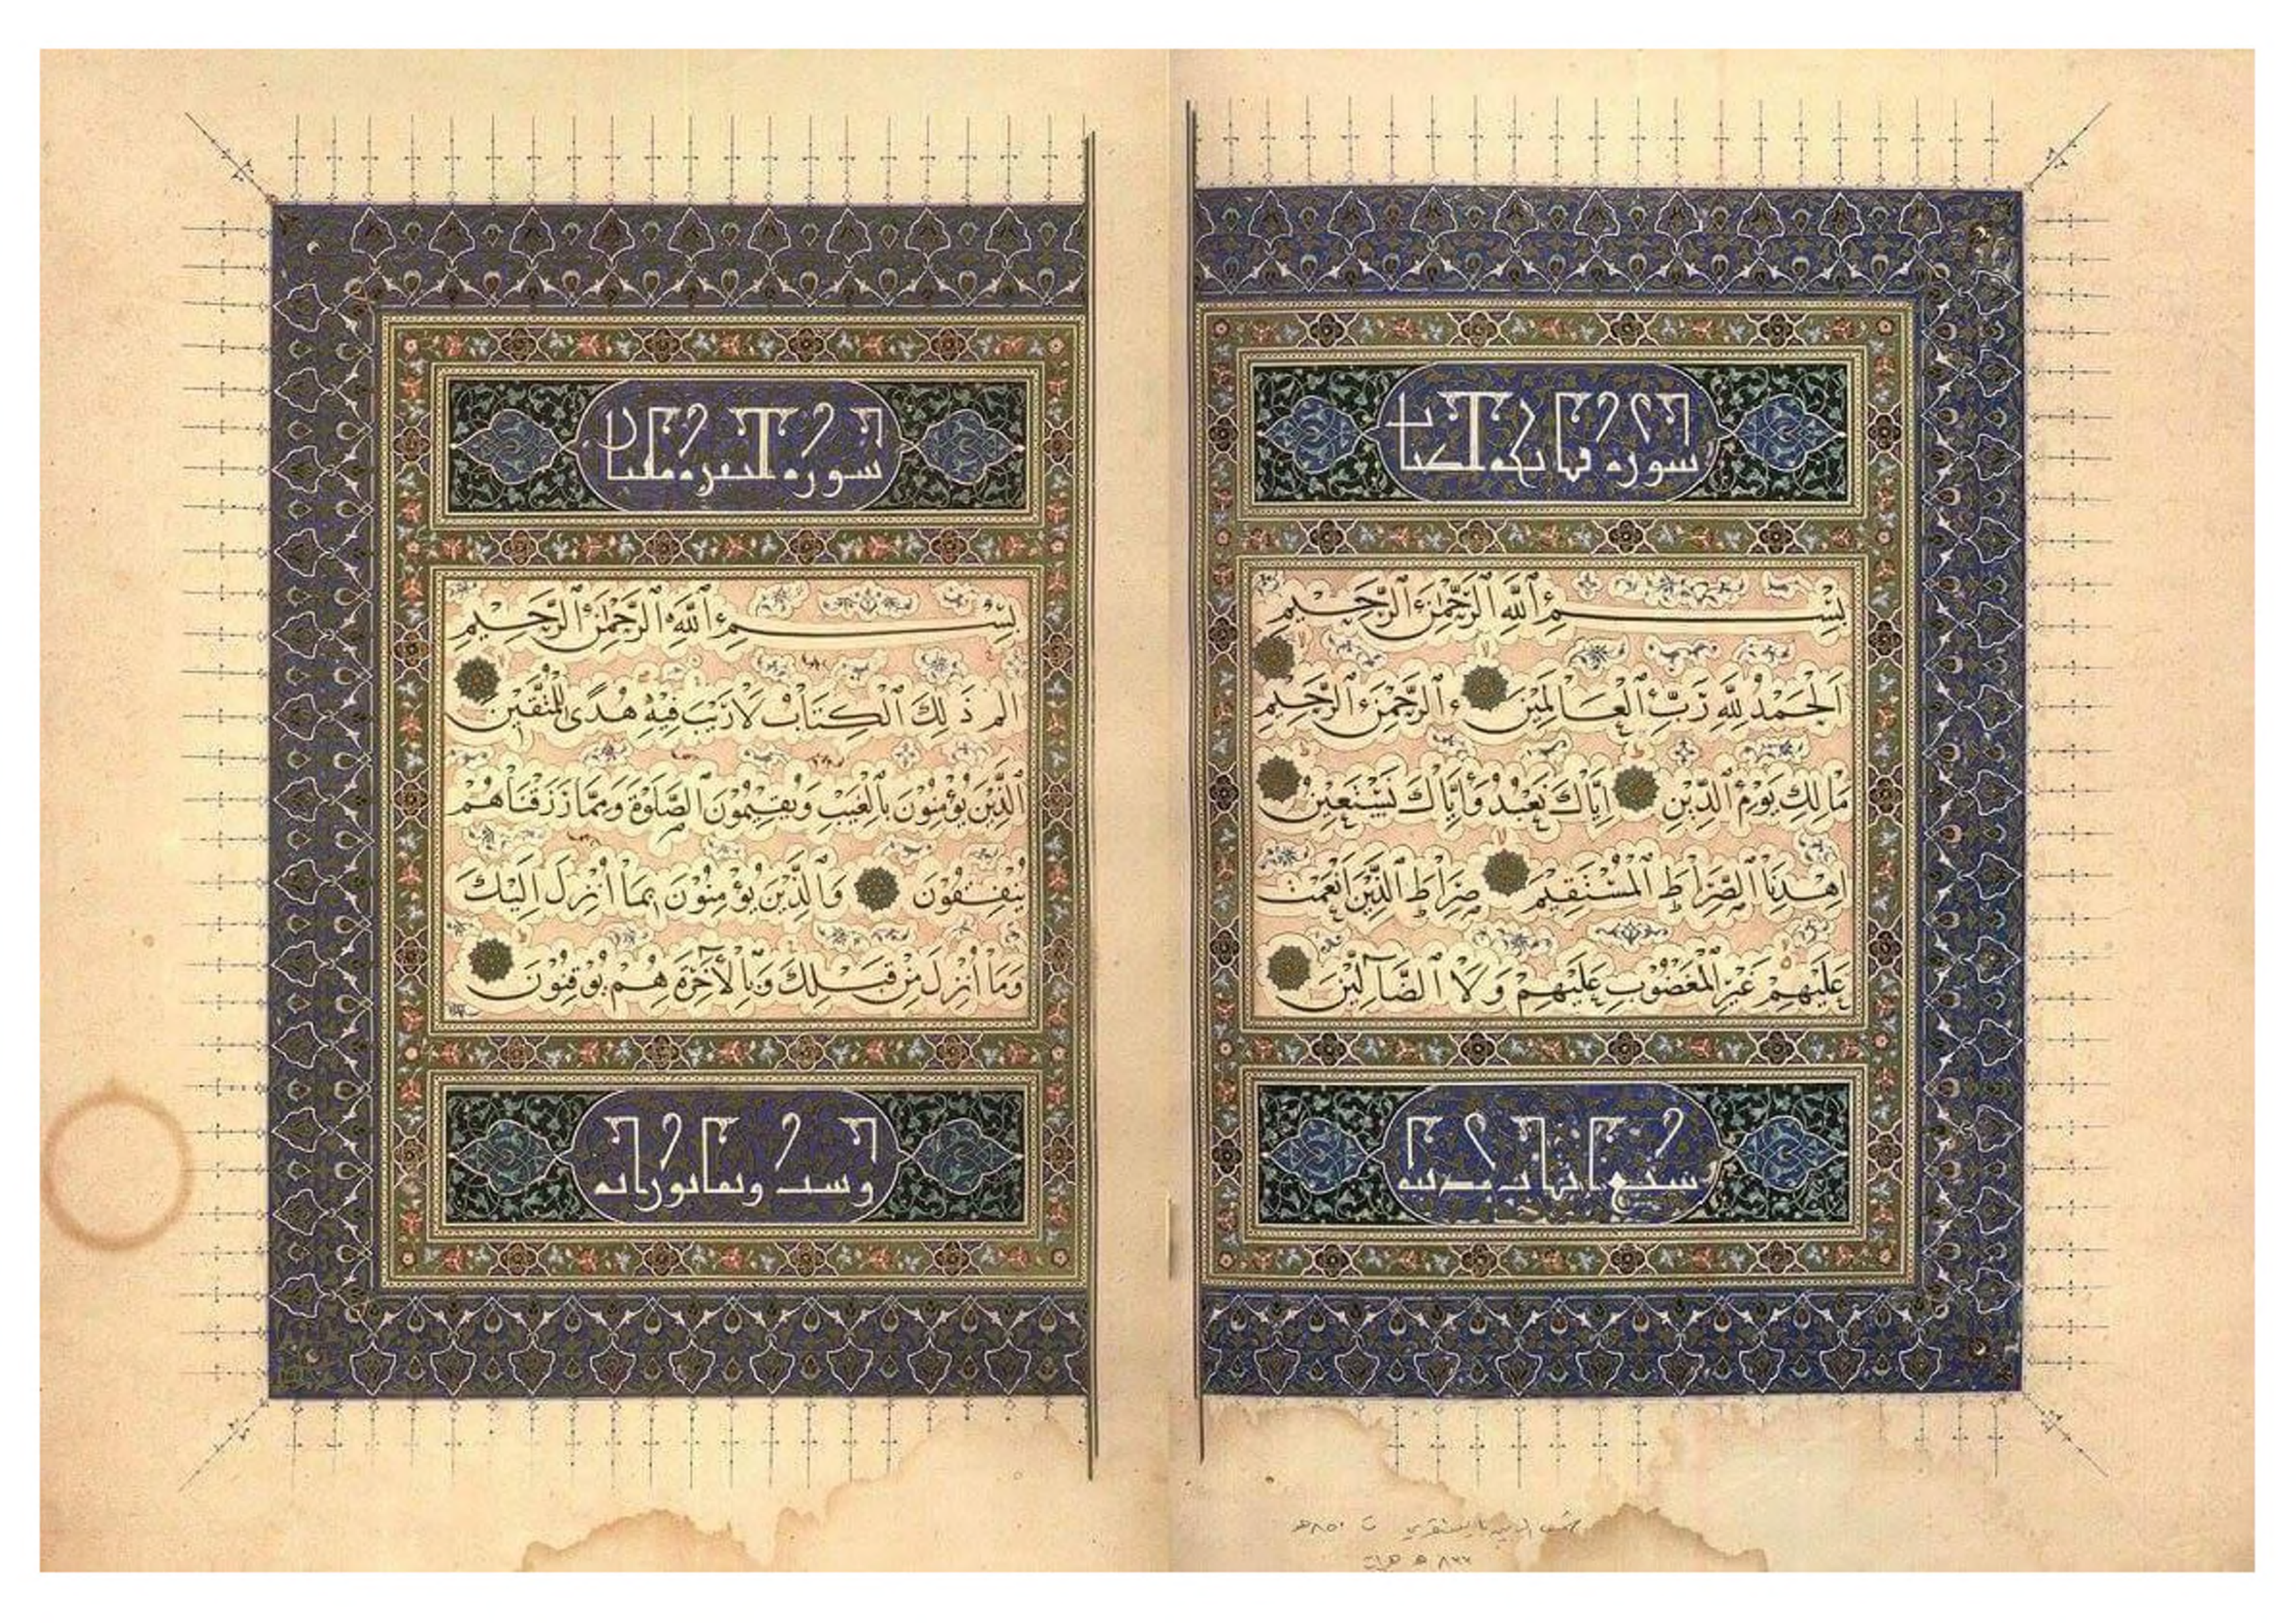 سورة فاتحة الكتاب
بِسْمِ ٱللَّهِ ٱلرَّحْمٰنِ ٱلرَّحِيمِ
اَلْحَمْدُ لِلَّهِ رَبِّ ٱلْعَالَمِينَ ٱلرَّحْمٰنِ ٱلرَّحِيمِ
مَالِكِ يَوْمِ ٱلدِّينِ إِيَّاكَ نَعْبُدُ وَإِيَّاكَ نَسْتَعِينُ
اِهْدِنَا ٱلصِّرَاطَ ٱلْمُسْتَقِيمَ صِرَاطَ ٱلَّذِينَ أَنْعَمْتَ
عَلَيْهِمْ غَيْرِ ٱلْمَغْضُوبِ عَلَيْهِمْ وَلَا ٱلضَّآلِّينَ
سبع ايات مدنية
٨٥٠هـ
هـ هرات
سورة البقرة مائتان
بِسْمِ ٱللَّهِ ٱلرَّحْمٰنِ ٱلرَّحِيمِ
الم ذَلِكَ ٱلْكِتَابُ لَا رَيْبَ فِيهِ هُدًى لِلْمُتَّقِينَ
ٱلَّذِينَ يُؤْمِنُونَ بِٱلْغَيْبِ وَيُقِيمُونَ ٱلصَّلٰوةَ وَمِمَّا رَزَقْنَاهُمْ
يُنْفِقُونَ وَٱلَّذِينَ يُؤْمِنُونَ بِمَا أُنْزِلَ إِلَيْكَ
وَمَا أُنْزِلَ مِنْ قَبْلِكَ وَبِٱلْأٓخِرَةِ هُمْ يُوقِنُونَ
وست وثمانون اية